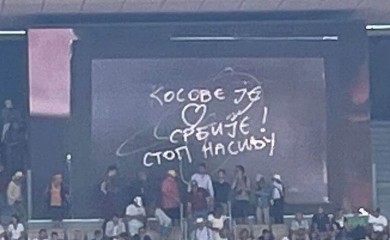 КОСОВО ЈЕ
♡
СРБИЈЕ!
СТОП НАСИЉУ